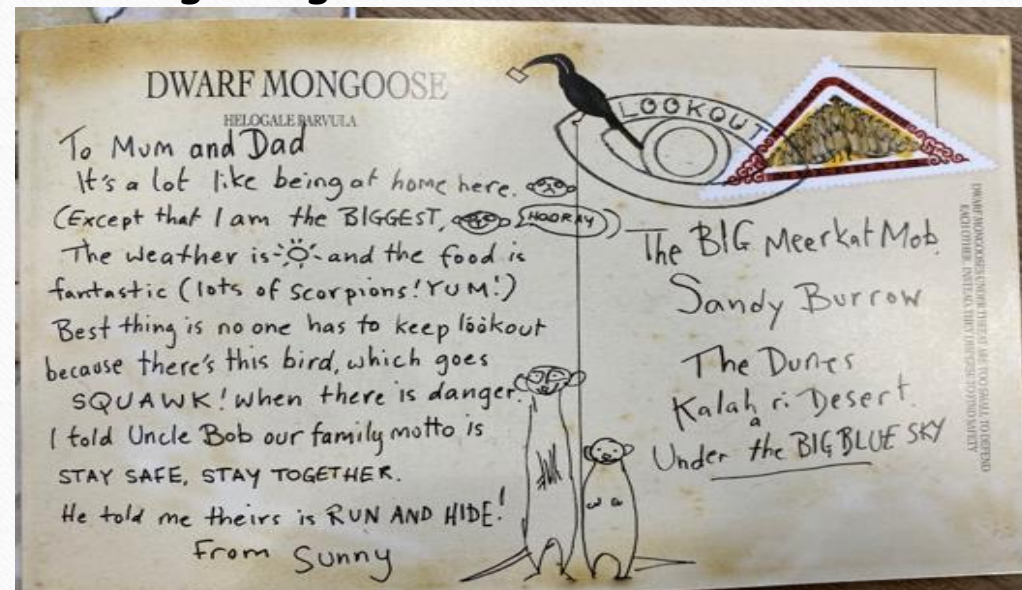 DWARF MONGOOSE
HELOGALE PARVULA
To Mum and Dad
It's a lot like being at home here.
(Except that I am the BIGGEST, HOORAY)
The weather is and the food is
fantastic (lots of scorpions! YUM!)
Best thing is no one has to keep lookout
because there's this bird, which goes
SQUAWK! when there is danger.
I told Uncle Bob our family motto is
STAY SAFE, STAY TOGETHER.
He told me theirs is RUN AND HIDE!
From Sunny
LOOKOUT
The BIG Meerkat Mob
Sandy Burrow
The Dunes
Kalahari Desert
Under the BIG BLUE SKY
DWARF MONGOOSES UNDER THREAT ARE TOO SMALL TO DEFEND
EACH OTHER. INSTEAD, THEY TO FIND SAFETY